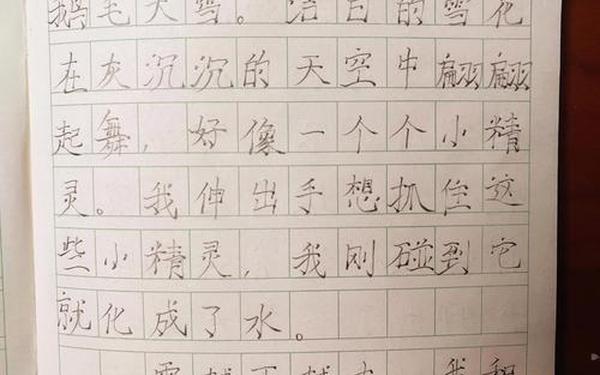 鹅毛大雪。洁白的雪花
在灰沉沉的天空中翩翩
起舞，好像一个个小精
灵。我伸出手想抓住这
些小精灵，我刚碰到它
就化成了水。